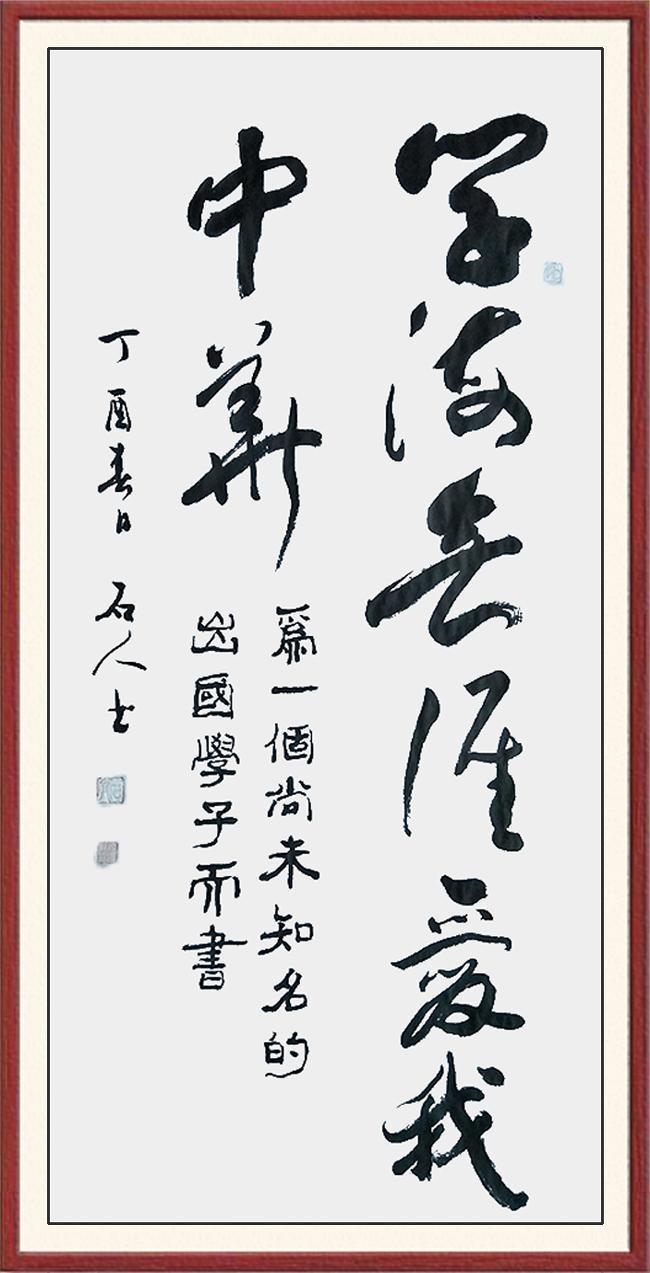 学海無涯愛我
中華
爲一個尚未知名的
出國學子而書
丁酉春日 石人書